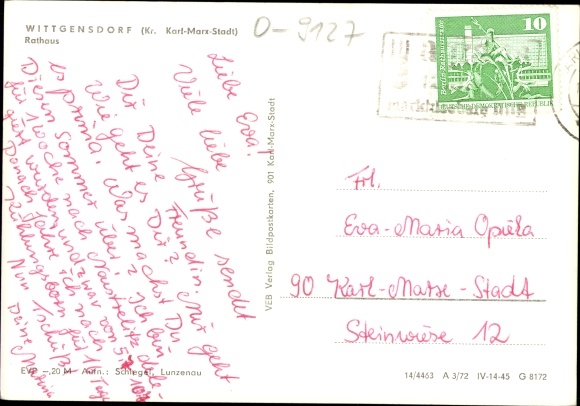 WITTGENSDORF (Kr. Karl-Marx-Stadt)
Rathaus
O-9127
10
Berlin Rathausstrasse
DEUTSCHE DEMOKRATISCHE REPUBLIK
Liebe Eva!
Viele liebe Grüße sendet
Dir Deine Freundin. Mir geht
es prima. Was machst Du
Wie geht es Dir?
Diesen Sommer über? Ich bin
für 1 Woche nach Neustrelitz dele-
giert wurden und zwar von 5.
Danach fahre ich nach
Kühlungsborn für
Nun Tschüß
Deine Martina
VEB Verlag Bildpostkarten, 901 Karl-Marx-Stadt
Frl.
Eva-Maria Opiela
90 Karl-Marx-Stadt
Steinwiese 12
EVP -,20 M Aufn.: Schlegel, Lunzenau
14/4463 A 3/72 IV-14-45 G 8172